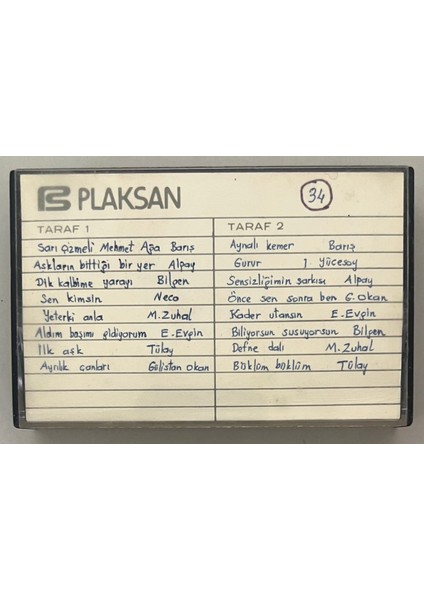 PLAKSAN
34
TARAF 1
Sarı çizmeli Mehmet Ağa Barış
Aşkların bittiği bir yer Alpay
Dik kalbime yarayı Bilgen
Sen kimsin Neco
Yeterki anla M.Zuhal
Aldım başımı gidiyorum E.Evgin
İlk aşk Tülay
Ayrılık çanları Gülistan Okan
TARAF 2
Aynalı kemer Barış
Gurur İ Yücesoy
Sensizliğimin şarkısı Alpay
Önce sen sonra ben G.Okan
Kader utansın E.Evgin
Biliyorsun susuyorsun Bilgen
Defne dalı M.Zuhal
Büklüm büklüm Tülay